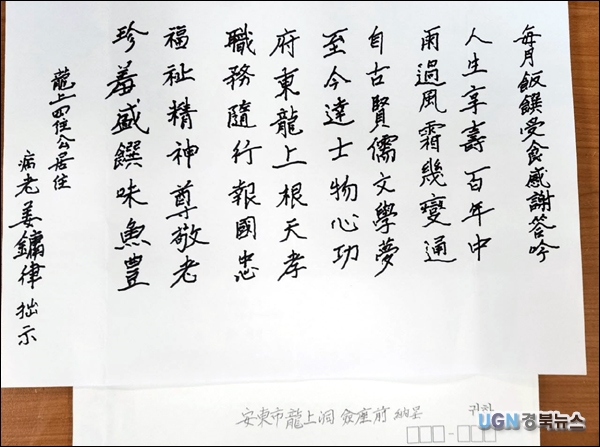 每月飯饌受食感謝答吟
人生享壽百年中
雨過風霜幾變通
自古賢儒文學夢
至今達士物心功
府東龍上根天孝
職務隨行報國忠
福祉精神尊敬老
珍羞盛饌味魚豊
龍上四住公居住
病老姜鏞律拙示
安東市龍上洞 僉座前 納呈
귀하
UGN경북뉴스